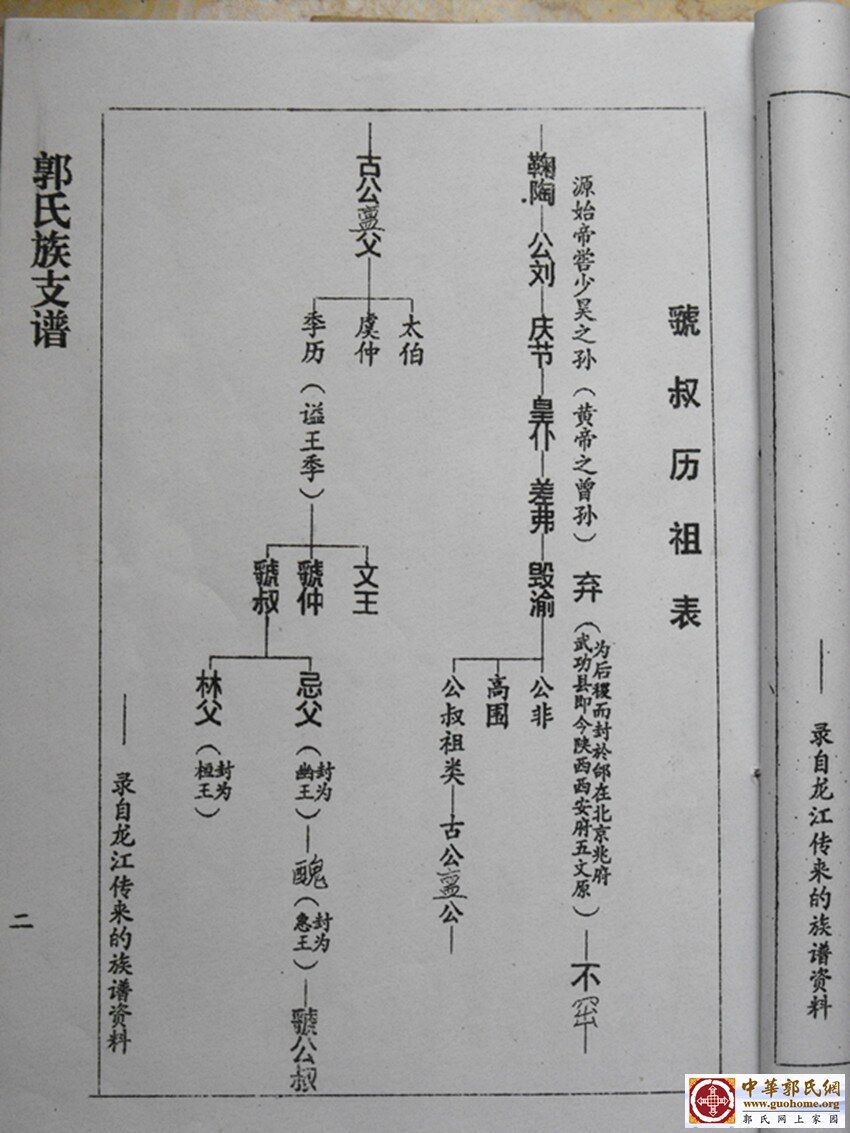 虢叔历祖表
源始帝喾少昊之孙（黄帝之曾孙）弃（为后稷而封於邰在北京兆府武功县即今陕西西安府五文原）—不窋—
鞠陶—公刘—庆节—皇仆—差弗—毁渝
公非
高围
公叔祖类—古公亶公—
古公亶父
太伯
虞仲
季历（谥王季）
文王
虢仲
虢叔
忌父（封为幽王）—醜（封为惠王）—虢公叔
林父（封为桓王）
——录自龙江传来的族谱资料
郭氏族支谱
二
——录自龙江传来的族谱资料
中華郭氏網
www.guohome.org
郭氏网上家园